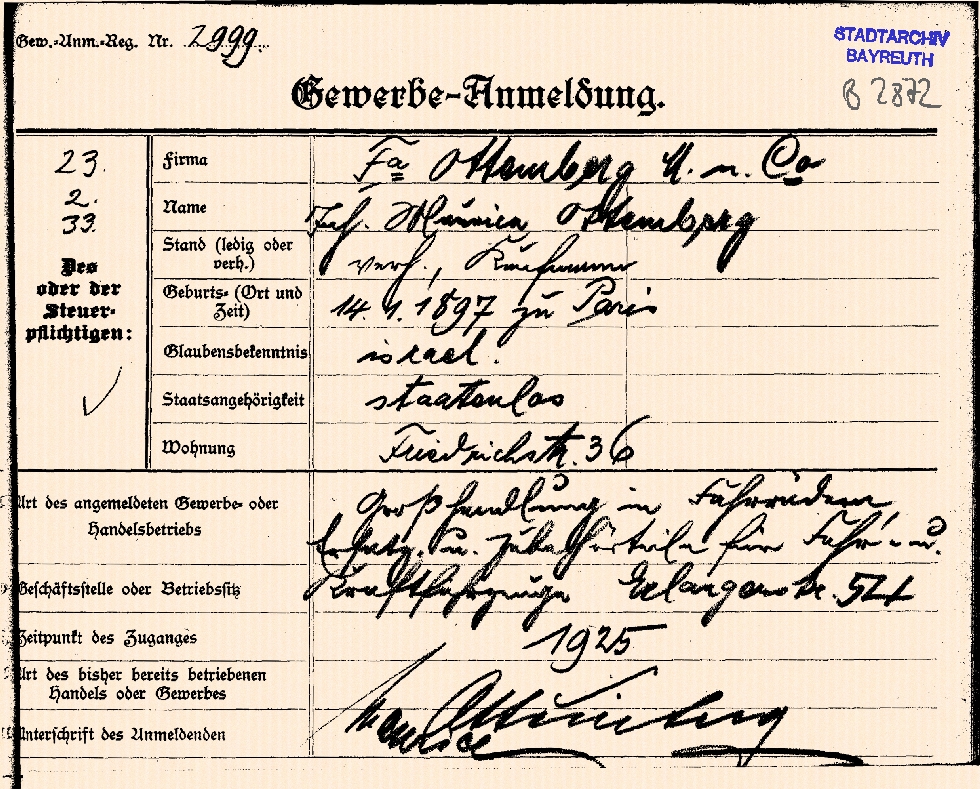 Gew.-Anm.-Reg. Nr. 2999.
STADTARCHIV
BAYREUTH
B 2872
Gewerbe-Anmeldung.
23.
2.
33.
Des
oder der
Steuer-
pflichtigen:
Firma Fa Ottenberg M. u. Co
Name Inh. Maurice Ottenberg
Stand (ledig oder
verh.) verh., Kaufmann
Geburts- (Ort und
Zeit) 14.1.1897 zu Paris
Glaubensbekenntnis israel.
Staatsangehörigkeit staatenlos
Wohnung Friedrichstr. 36
Art des angemeldeten Gewerbe- oder
Handelsbetriebs
Großhandlung in Fahrrädern
Ersatz- u. Zubehörteile für Fahr- u.
Kraftfahrzeuge Erlangerstr.
Geschäftsstelle oder Betriebssitz
Zeitpunkt des Zuganges 1925
Art des bisher bereits betriebenen
Handels oder Gewerbes
Unterschrift des Anmeldenden Maurice Ottenberg